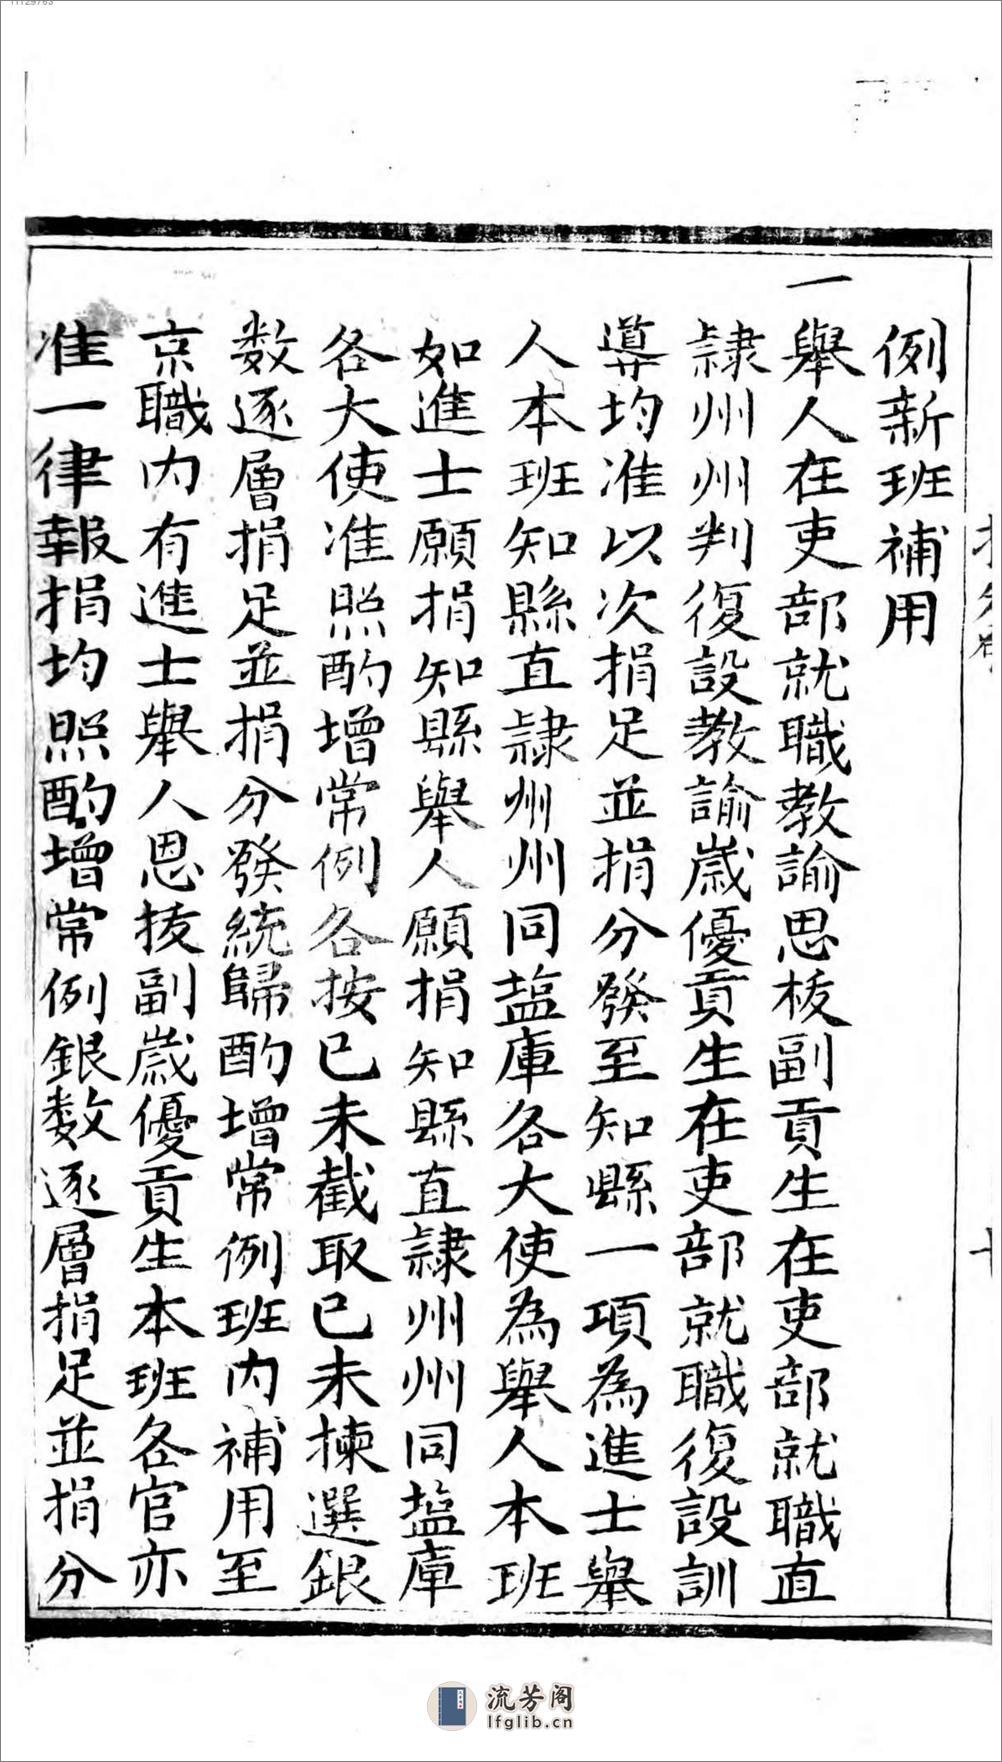 例新班補用
一舉人在吏部就職教諭恩拔副貢生在吏部就職直
隷州州判復設教諭歲優貢生在吏部就職復設訓
導均准以次捐足並捐分發至知縣一項為進士舉
人本班知縣直隷州州同鹽庫各大使為舉人本班
如進士願捐知縣舉人願捐知縣直隷州州同鹽庫
各大使准照酌增常例各按已未截取已未揀選銀
数逐層捐足並捐分發統歸酌增常例班内補用至
京職内有進士舉人恩拔副歲優貢生本班各官亦
准一律報捐均照酌增常例銀数逐層捐足並捐分
流芳阁
lfglib.cn